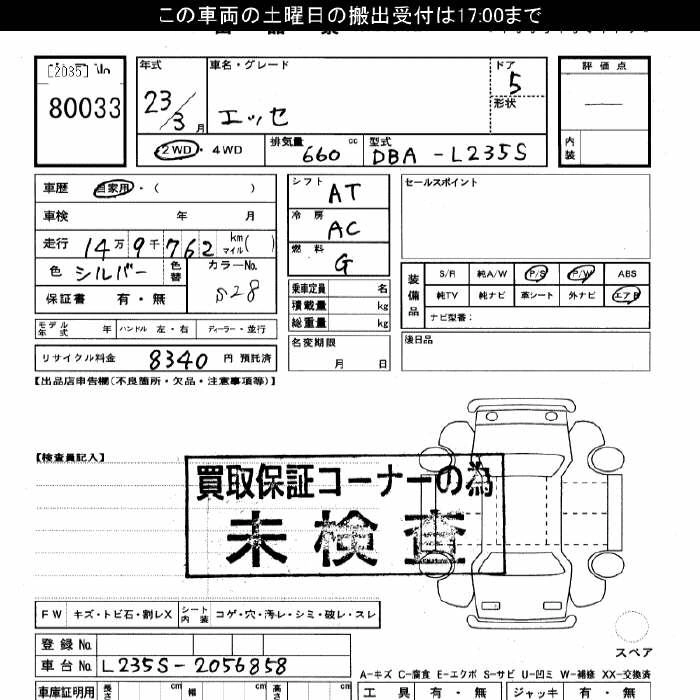 この車両の土曜日の搬出受付は17:00まで
[2035] No
80033
年式 車名・グレード ドア 評価点
23/3月 エッセ 5
形状
2WD・4WD 排気量 660 cc 型式 DBA-L235S
内装
車歴 自家用・( )
車検 年 月
走行 14万9千762 km マイル( )
色 シルバー 色替 カラーNo. S28
保証書 有・無
シフト AT
冷房 AC
燃料 G
乗車定員 名
積載量 kg
総重量 kg
セールスポイント
装備品 S/R 純A/W P/S P/W ABS
純TV 純ナビ 革シート 外ナビ エアB
ナビ型番:
モデル年式 年 ハンドル 左・右 ディーラー・並行
名変期限 月 日
後日品
リサイクル料金 8340 円 預託済
【出品店申告欄(不良箇所・欠品・注意事項等)】
【検査員記入】
買取保証コーナーの為
未検査
FW キズ・トビ石・割レX シート内装 コゲ・穴・汚レ・シミ・破レ・スレ
スペア
登録No.
車台No. L235S-2056858
A-キズ C-腐食 E-エクボ S-サビ U-凹ミ W-補修 XX-交換済
車庫証明用 長さ cm 幅 cm 高さ cm 工具 有・無 ジャッキ 有・無